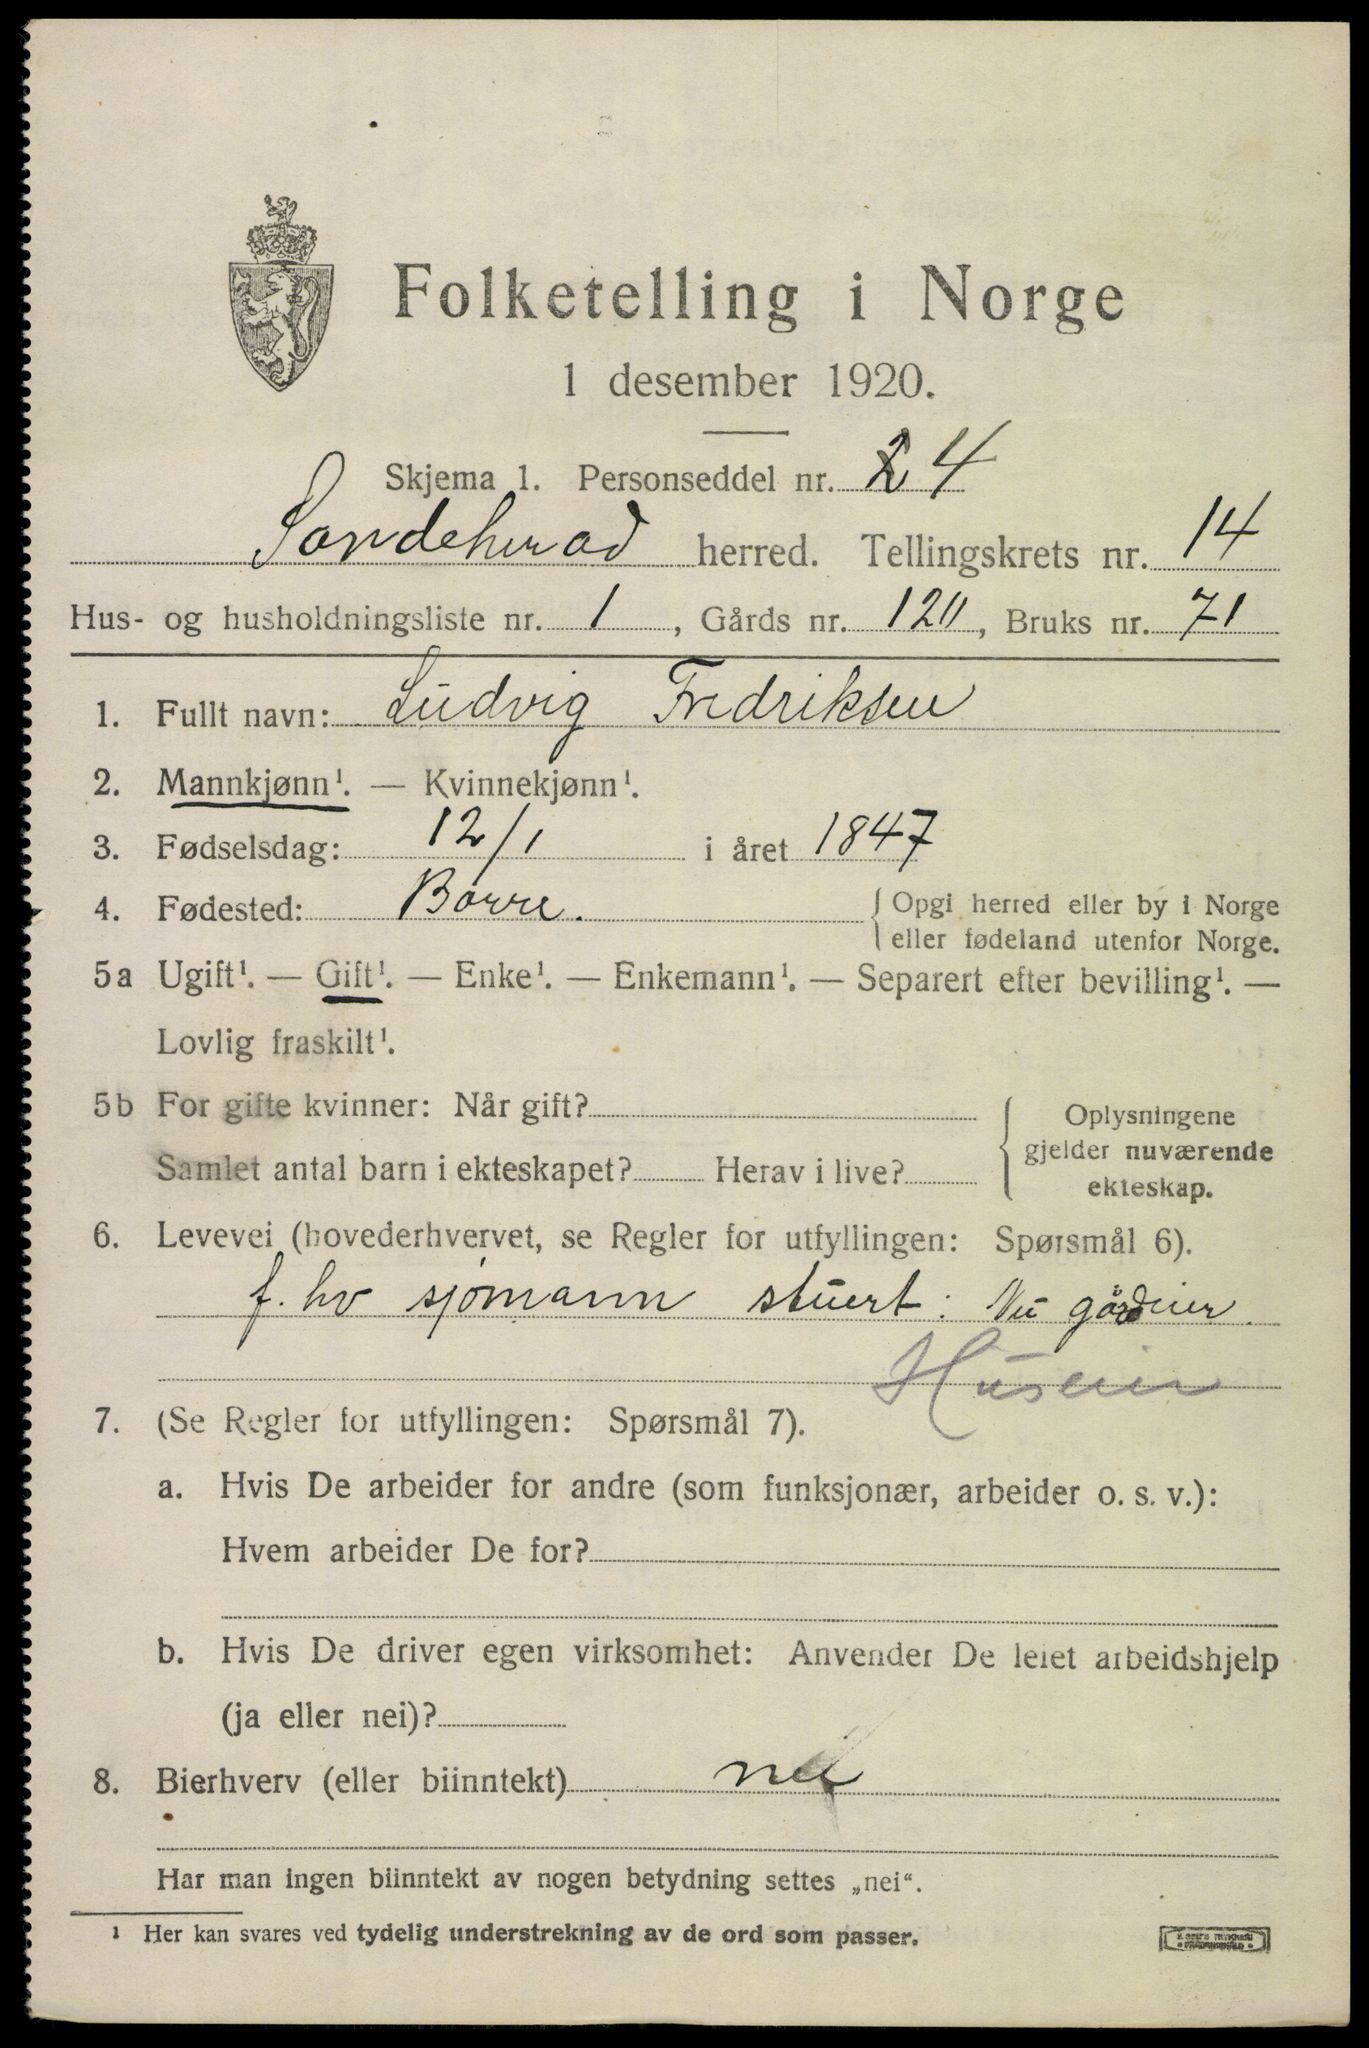 Folketelling i Norge
1 desember 1920.
Skjema 1. Personseddel nr. 4
Sandeherad herred. Tellingskrets nr. 14
Hus- og husholdningsliste nr. 1, Gårds nr. 120, Bruks nr. 71
1. Fullt navn: Ludvig Fredriksen
2. Mannkjønn¹. — Kvinnekjønn¹.
3. Fødselsdag: 12/1 i året 1847
4. Fødested: Borre. { Opgi herred eller by i Norge
eller fødeland utenfor Norge.
5a Ugift¹. — Gift¹. — Enke¹. — Enkemann¹. — Separert efter bevilling¹. —
Lovlig fraskilt¹.
5b For gifte kvinner: Når gift?
Samlet antal barn i ekteskapet? Herav i live?
Oplysningene
gjelder nuværende
ekteskap.
6. Levevei (hovederhvervet, se Regler for utfyllingen: Spørsmål 6).
f. hv sjømann stuert: Nu gårdeier.
Huseier
7. (Se Regler for utfyllingen: Spørsmål 7).
a. Hvis De arbeider for andre (som funksjonær, arbeider o. s. v.):
Hvem arbeider De for?
b. Hvis De driver egen virksomhet: Anvender De leiet arbeidshjelp
(ja eller nei)?
8. Bierhverv (eller biinntekt) nei
Har man ingen biinntekt av nogen betydning settes „nei“.
¹ Her kan svares ved tydelig understrekning av de ord som passer.